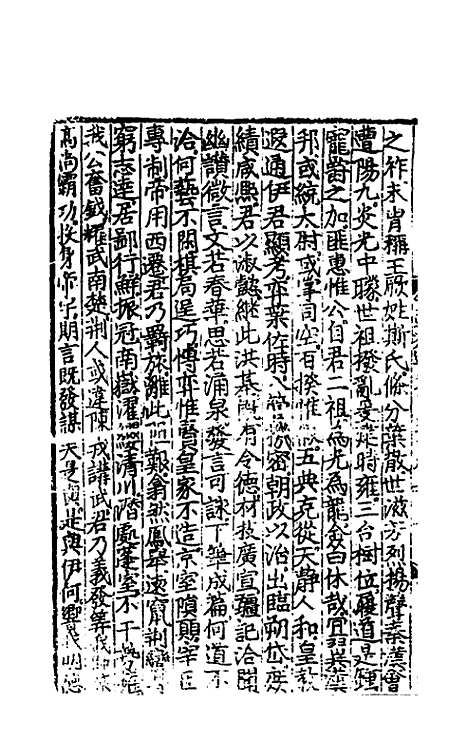 之祚末冑稱王厥姓斯氏條分葉散世滋芳烈揚聲秦漢會
遭陽九炎光中矇世祖撥亂爰建時雍三台樹位履道是鍾
寵爵之加匪惠惟恭自君二祖為光為龍僉曰休哉宜翼漢
邦或統太尉或掌司空百揆惟叙五典克從天靜人和皇教
遐通伊君顯考奕葉佐時入管機密朝政以治出臨朔岱庶
績咸熙君以淑懿繼此洪基既有令德材技廣宣彊記洽聞
幽讚微言文若春華思若涌泉發言可詠下筆成篇何道不
洽何藝不閑棋局逞巧博弈惟賢皇家不造京室隕顛宰臣
專制帝用西遷君乃羈旅離此阻艱翕然鳳舉遠竄荆蠻
窮志達居鄙行鮮振冠南嶽濯纓清川潛處蓬室不干勢
我公奮鉞耀武南楚荆人或違陳戎講武君乃義發算我師旅
高尚霸功投身帝宇斯言既發謀夫是與是與伊何響我明德